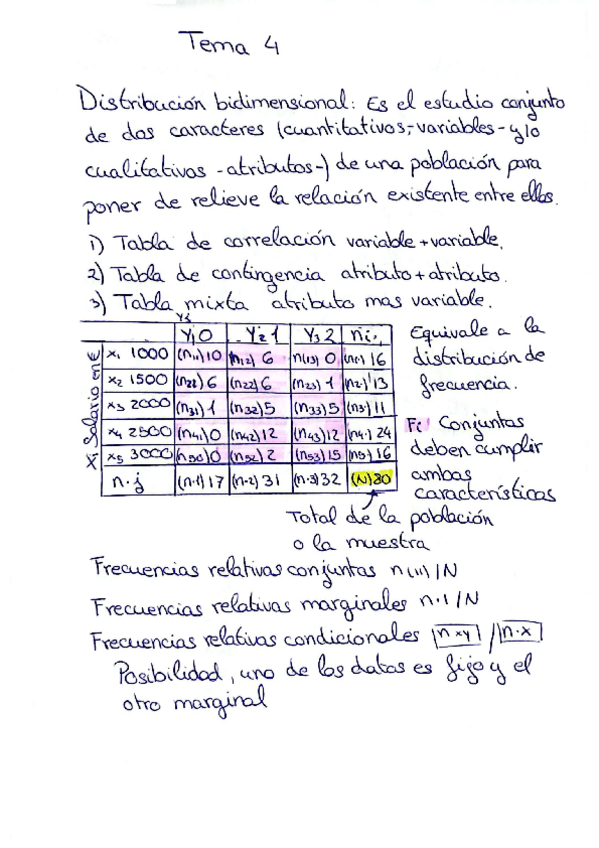 Tema 4
Distribución bidimensional: Es el estudio conjunto
de dos caracteres (cuantitativos,-variables- y/o
cualitativos -atributos-) de una población para
poner de relieve la relación existente entre ellos.
1) Tabla de correlación variable + variable.
2) Tabla de contingencia atributo + atributo.
3) Tabla mixta atributo mas variable.
Y1 0 Y2 1 Y3 2 ni.
Xi Salario en €
x1 1000 (n11) 10 (n12) 6 n(13) 0 (n1·) 16
x2 1500 (n22) 6 (n22) 6 (n23) 1 (n2·) 13
x3 2000 (n31) 1 (n32) 5 (n33) 5 (n3·) 11
x4 2500 (n41) 0 (n42) 12 (n43) 12 (n4·) 24
x5 3000 0 (n52) 2 (n53) 15 (n5·) 16
n.j (n·1) 17 (n·2) 31 (n·3) 32 (N) 80
Equivale a la
distribución de
frecuencia.
Fi Conjuntas
deben cumplir
ambas
características
Total de la población
o la muestra
Frecuencias relativas conjuntas n(11)/N
Frecuencias relativas marginales n·1/N
Frecuencias relativas condicionales nxy / n·x
Posibilidad, uno de los datos es fijo y el
otro marginal